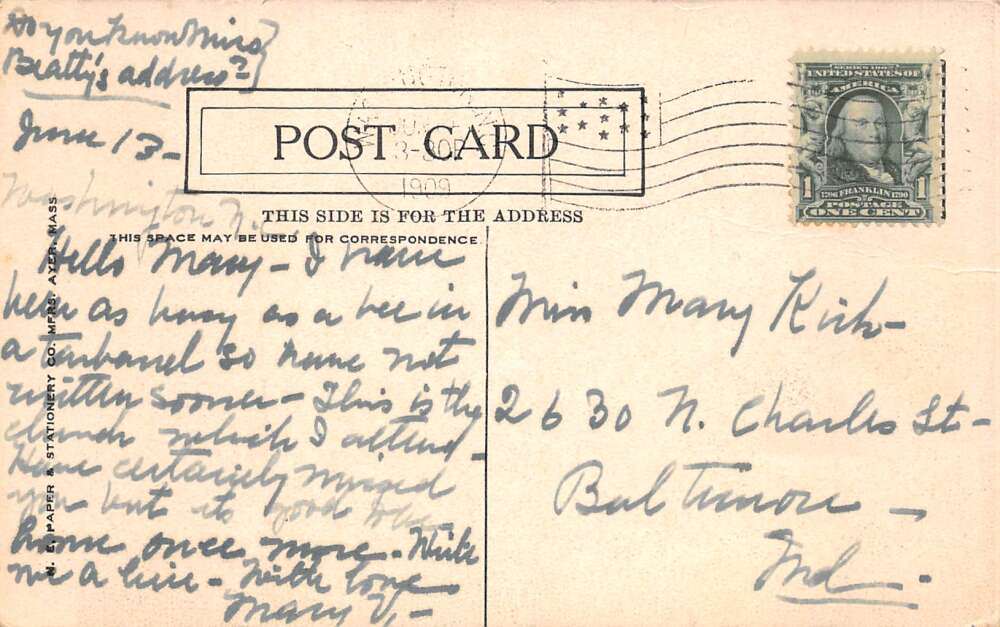 Do you know Miss
Beatty's address?
June 13-
Washington N.
POST CARD
THIS SIDE IS FOR THE ADDRESS
THIS SPACE MAY BE USED FOR CORRESPONDENCE
N. E. PAPER & STATIONERY CO. MFRS. AYER, MASS
1909
SERIES 1902
UNITED STATES OF
AMERICA
1706 FRANKLIN 1790
1 POSTAGE 1
ONE CENT
Hello Mary - I have
been as busy as a bee in
a tarbarrel so have not
written sooner - This is the
church which I attend -
Have certainly missed
you but it's good to be
home once more - Write
me a line - With love
Mary V. -
Miss Mary Kirk -
2630 N. Charles St -
Baltimore -
Md -